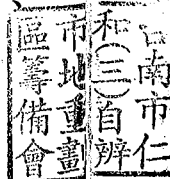 台南市仁
和(三)自辨
市地重劃
區籌備會